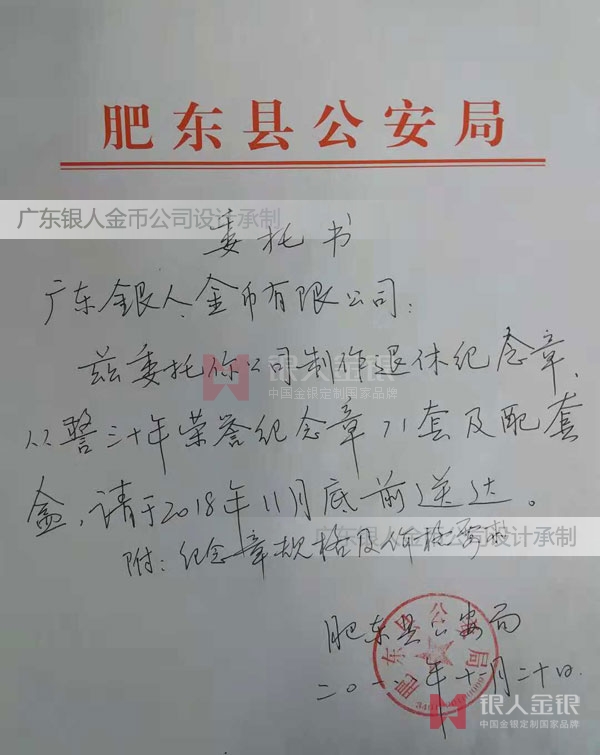 肥东县公安局
广东银人金币公司设计承制
委托书
广东银人金币有限公司：
兹委托你公司制作退休纪念章、
从警三十年荣誉纪念章71套及配套
盒，请于2018年11月底前送达。
银人金银
中国金银定制国家品牌
附：纪念章规格及价格要求
广东银人金币公司设计承制
肥东县公安局
二〇一八年十一月二十日
肥东县公安局
银人金银
中国金银定制国家品牌